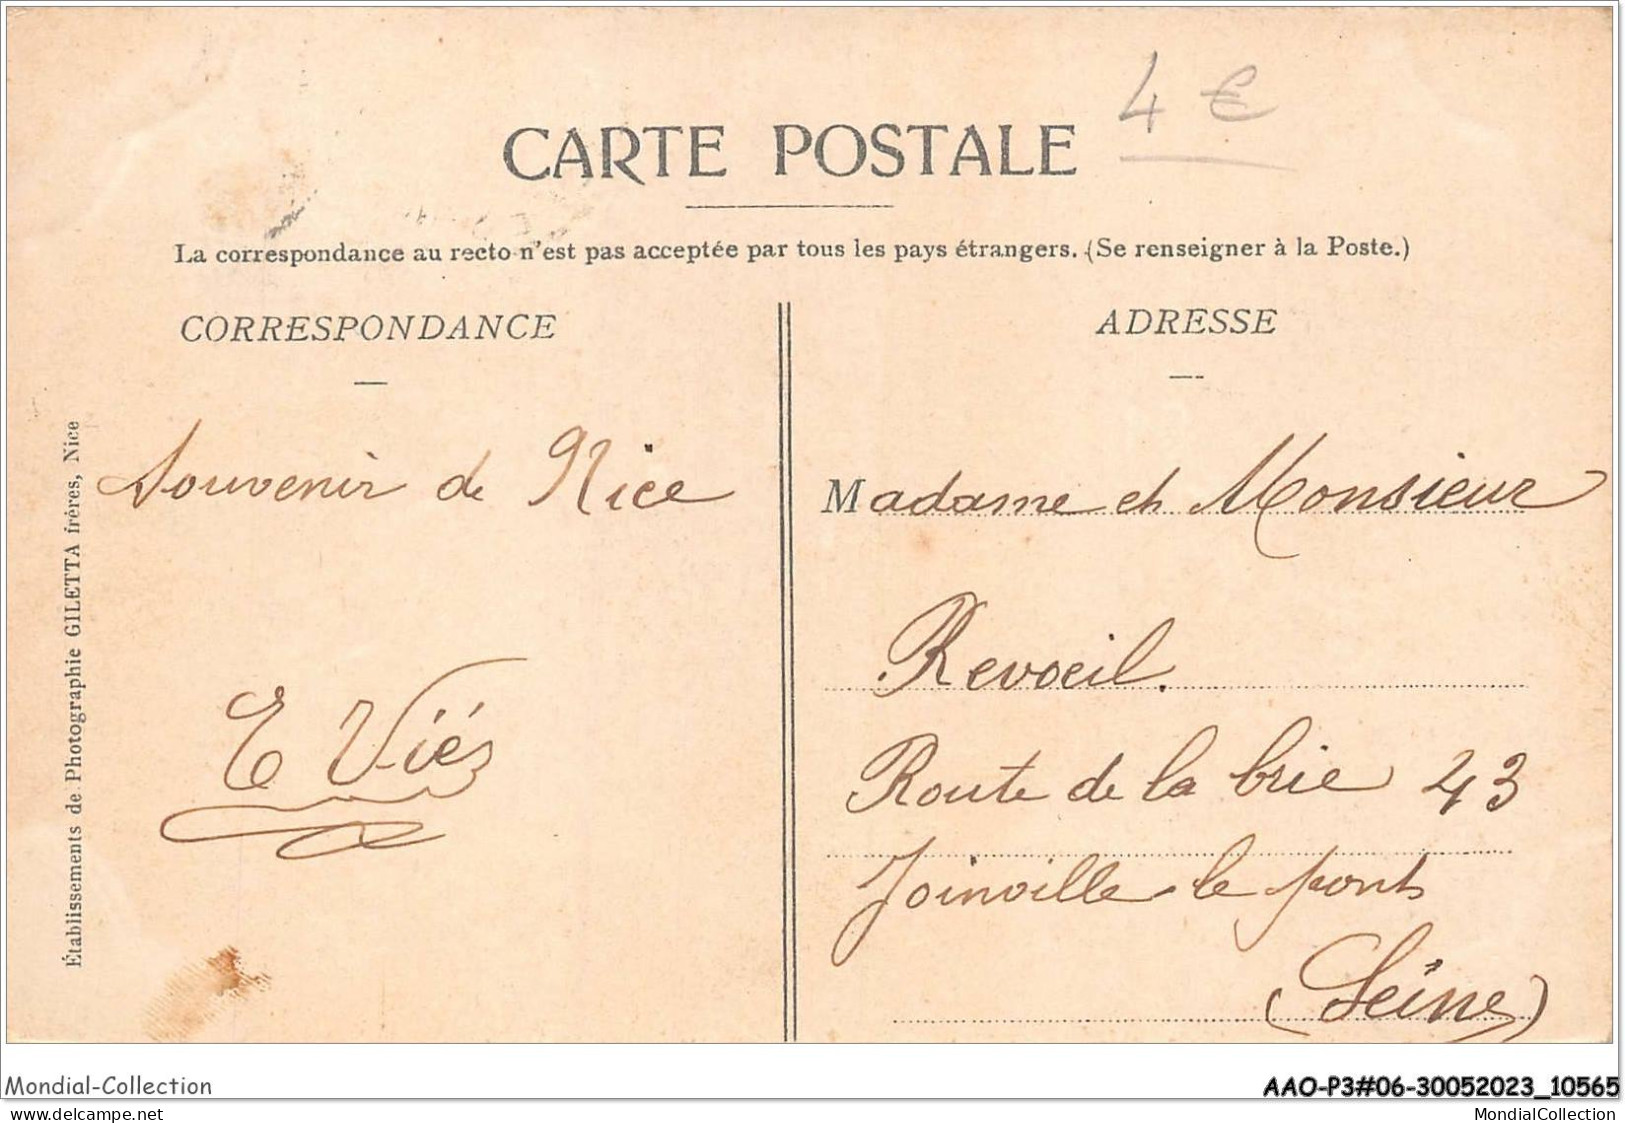 4 €
CARTE POSTALE
La correspondance au recto n'est pas acceptée par tous les pays étrangers. (Se renseigner à la Poste.)
CORRESPONDANCE
ADRESSE
Souvenir de Nice
E Viés
Madame et Monsieur
Revoeil.
Route de la brie 43
Joinville-le pont
(Seine)
Établissements de Photographie GILETTA frères, Nice
Mondial-Collection
AAO-P3#06-30052023_10565
www.delcampe.net
MondialCollection